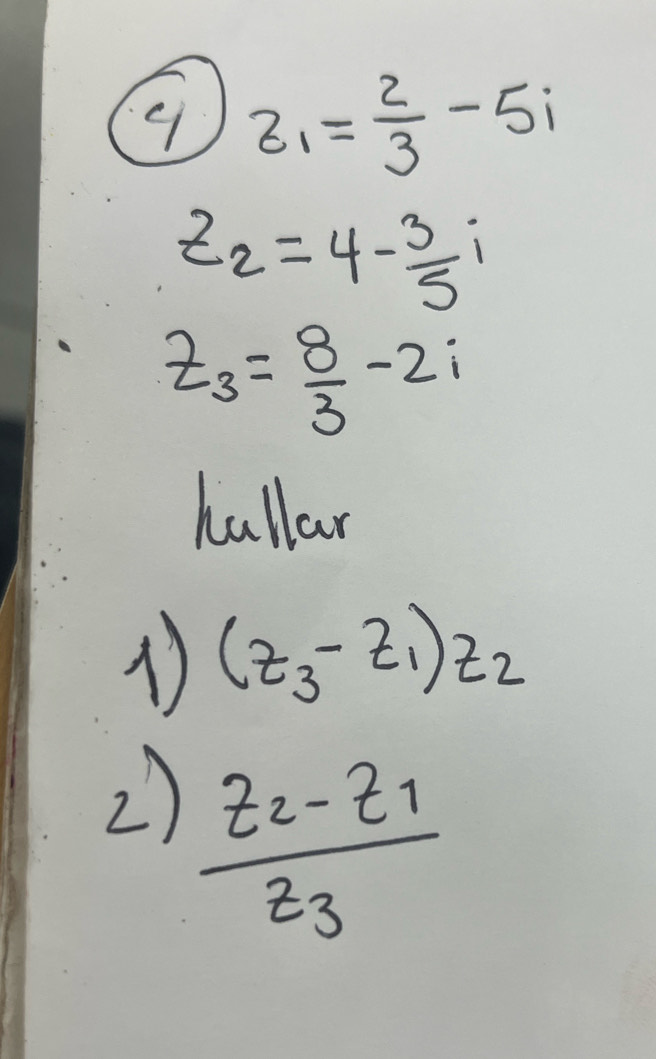 4) z₁ = 2/3 - 5i
z₂ = 4 - 3/5 i
z₃ = 8/3 - 2i
hallar
1) (z₃ - z₁) z₂
2) (z₂ - z₁)/z₃